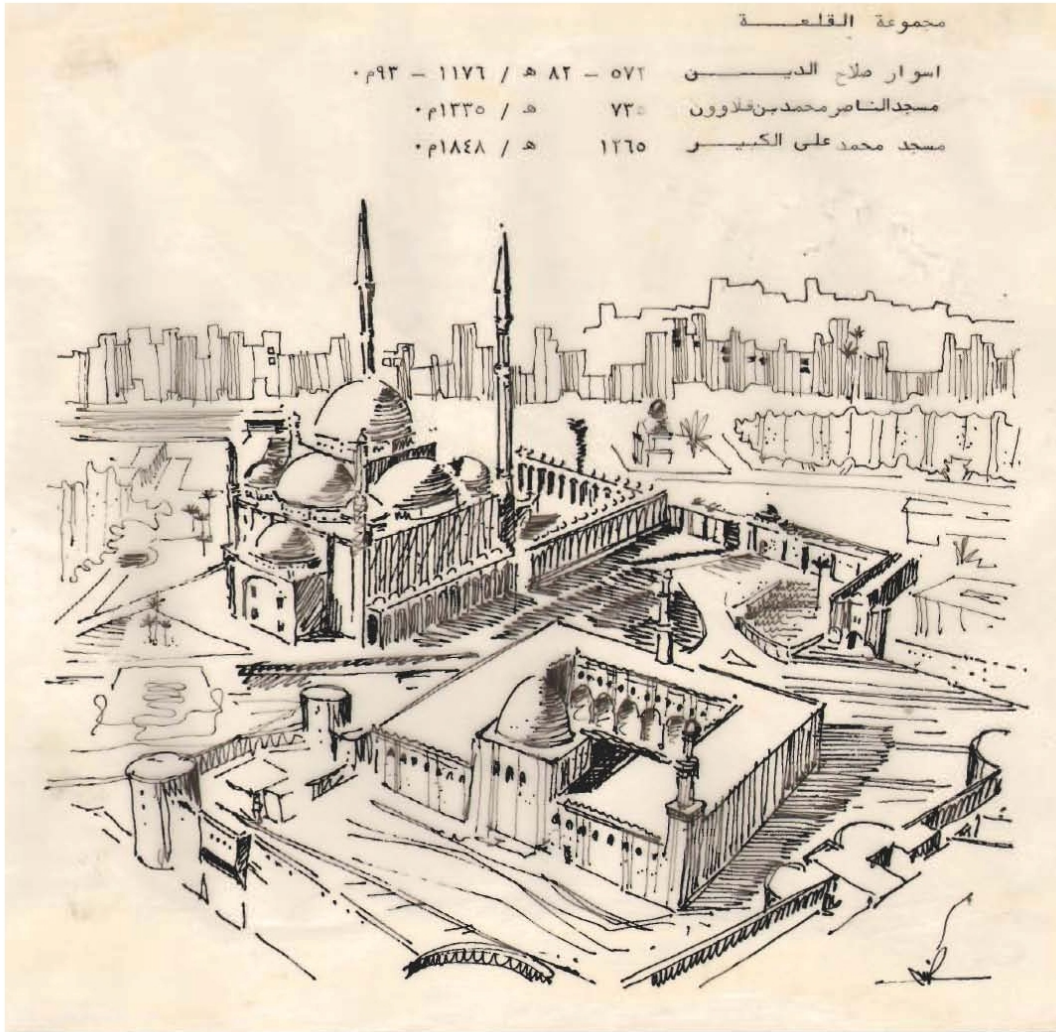 مجموعة القلعـــــــة
اسوار صلاح الديـــــن ٥٧٢ – ٨٢ ه / ١١٧٦ – ٩٣م٠
مسجد الناصر محمد بن قلاوون ٧٣٥ ه / ١٣٣٥م٠
مسجد محمد على الكبيـــر ١٢٦٥ ه / ١٨٤٨م٠